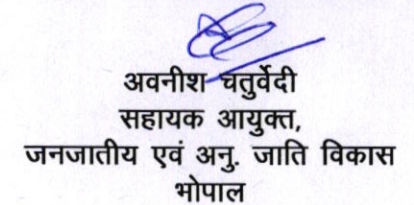 अवनीश चतुर्वेदी
सहायक आयुक्त,
जनजातीय एवं अनु. जाति विकास
भोपाल